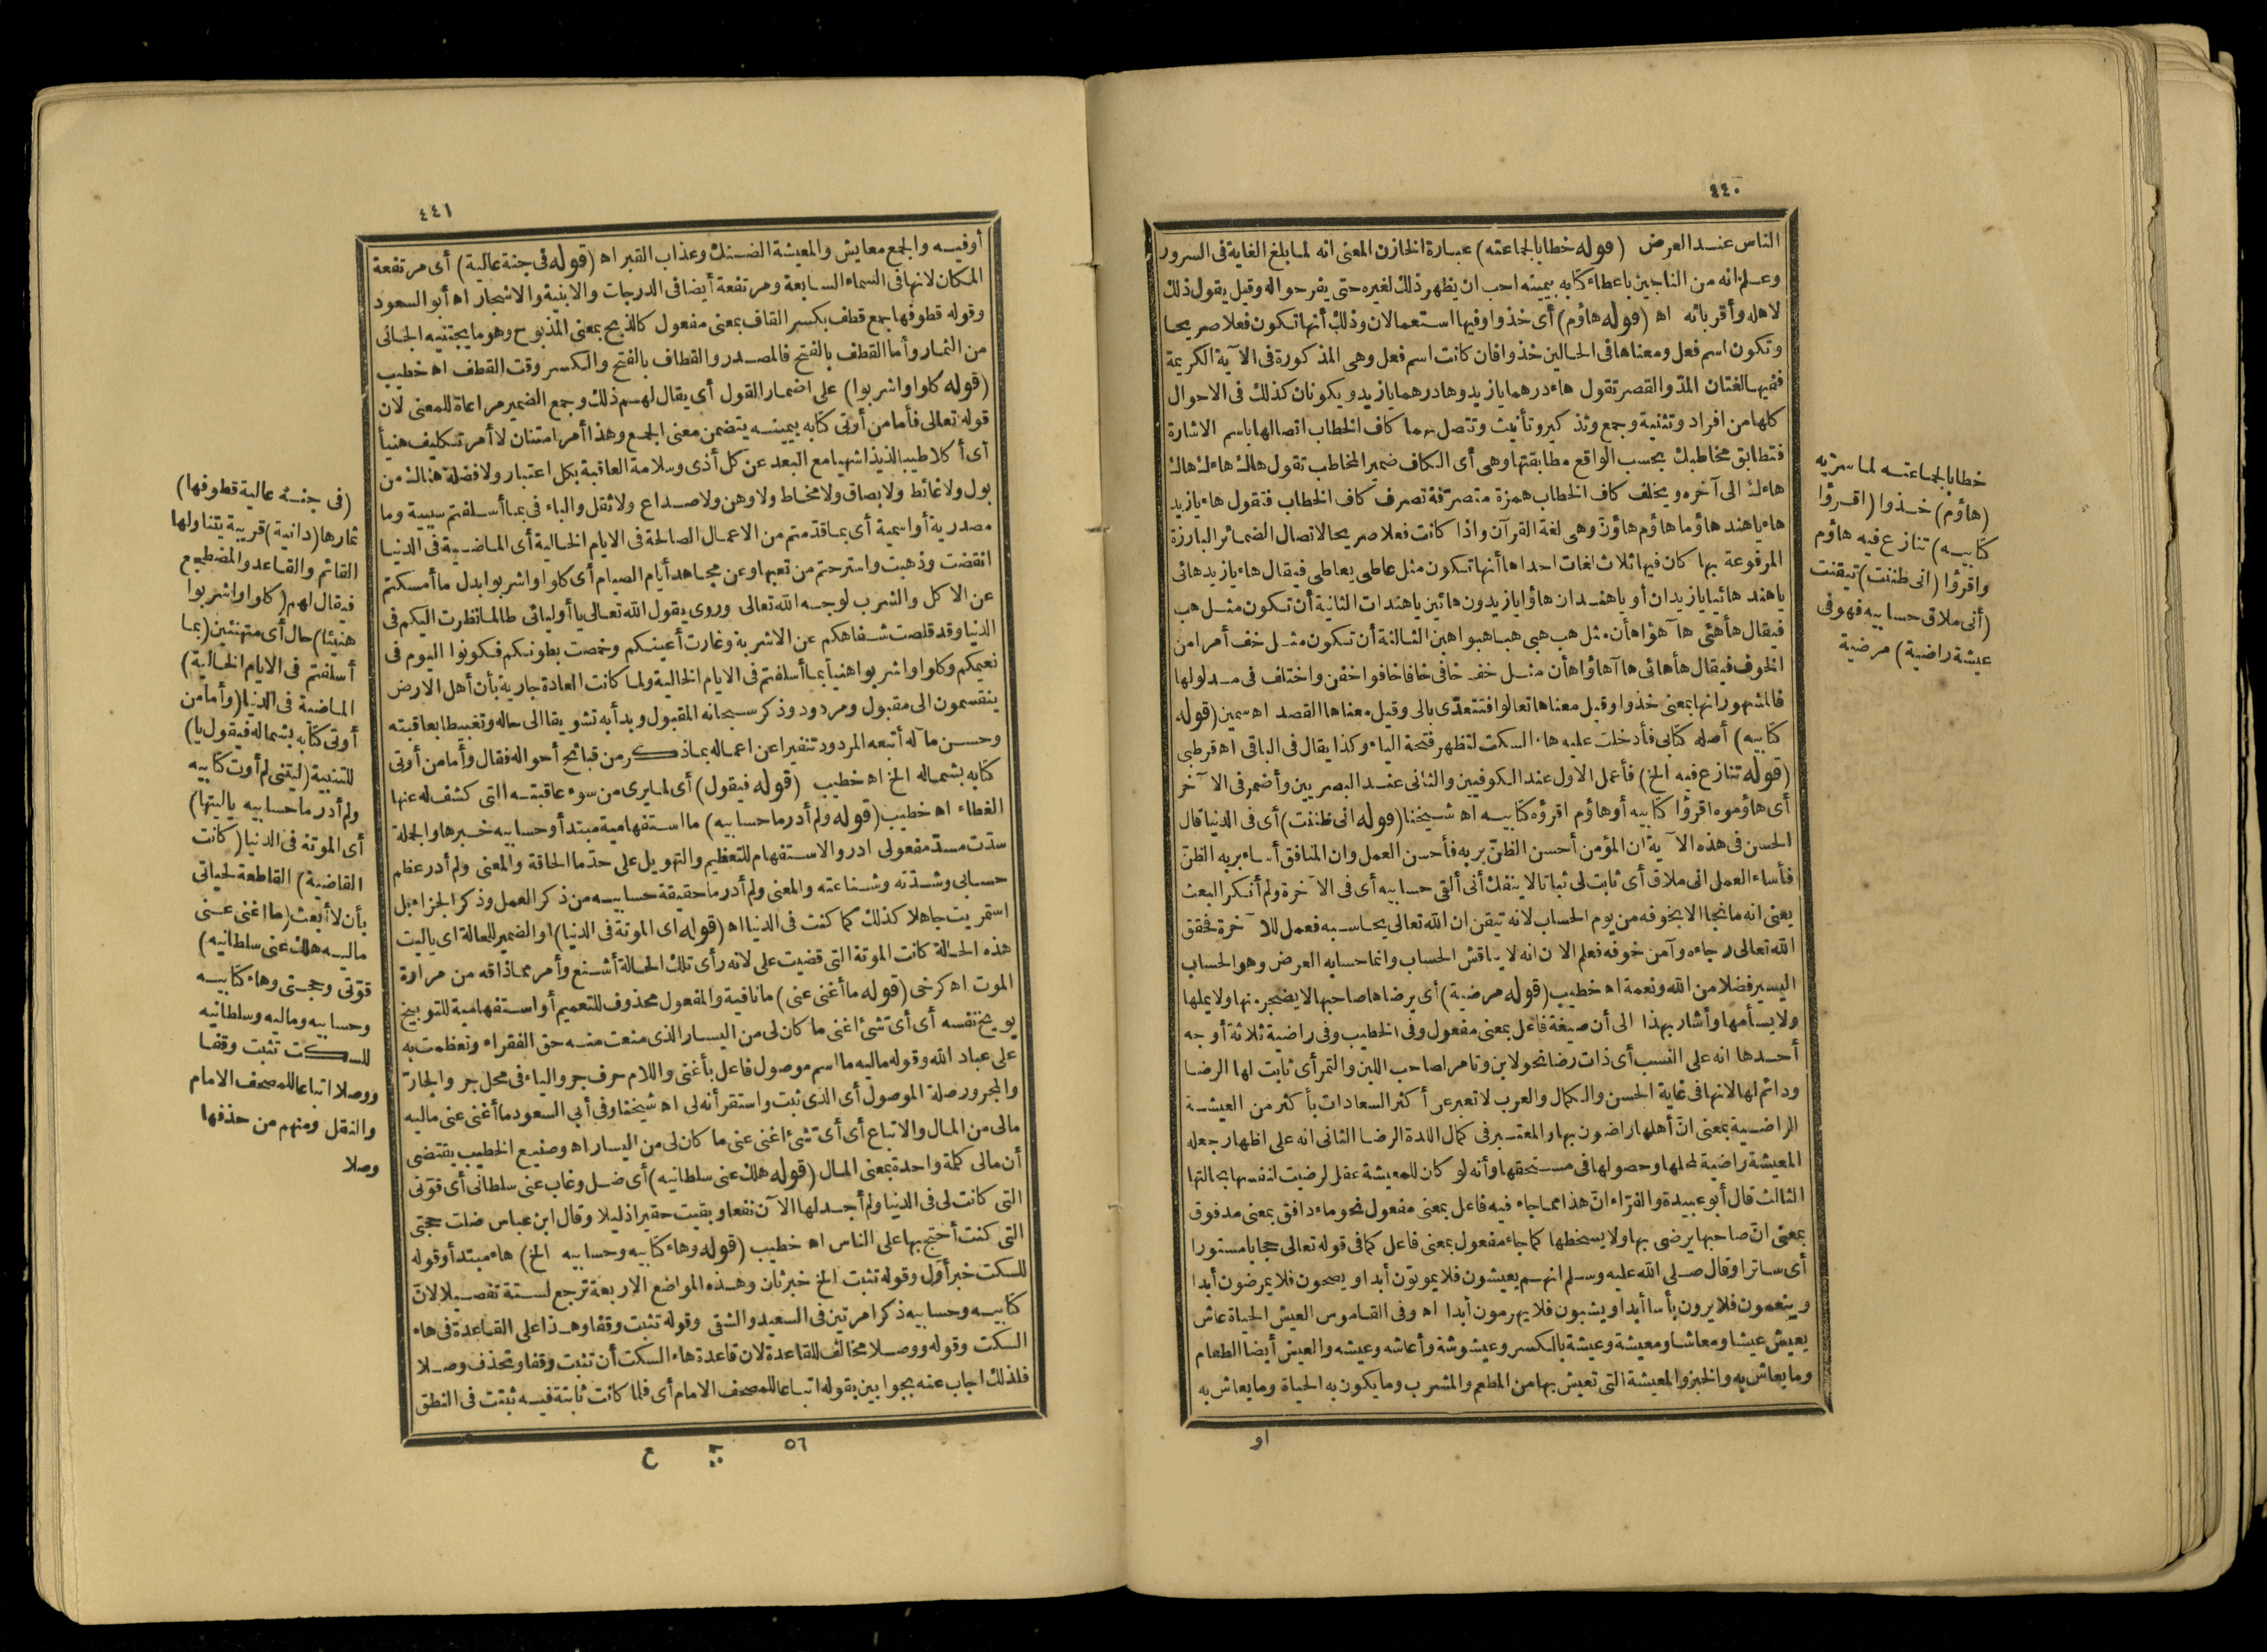 ٤٤٠
الناس عند العرض (قوله خطابا لجماعته) عبارة الخازن المعنى انه لما بلغ الغاية فى السرور
وعلم انه من الناجين باعطاء كتابه بيمينه احب ان يظهر ذلك لغيره حتى يفرحوا له وقيل يقول ذلك
لاهله وأقربائه اه (قوله هاؤم) أى خذوا وفيها استعمالان وذلك أنها تكون فعلا صريحا
وتكون اسم فعل ومعناها فى الحالين خذوا فان كانت اسم فعل وهى المذكورة فى الآية الكريمة
ففيها لغتان المدّ والقصر تقول هاء درهما يازيد وها درهما يازيد ويكونان كذلك فى الاحوال
كلها من افراد وتثنية وجمع وتذكير وتأنيث وتتصل بهما كاف الخطاب اتصالها باسم الاشارة
فتطابق مخاطبك بحسب الواقع مطابقتها وهى أى الكاف ضمير المخاطب تقول هاك هاءك هاك
هاءك الى آخره ويخلف كاف الخطاب همزة متصرّفة تصرف كاف الخطاب فتقول هاء يازيد
هاء ياهند هاؤما هاؤم هاؤنّ وهى لغة القرآن واذا كانت فعلا صريحا لاتصال الضمائر البارزة
المرفوعة بها كان فيها ثلاث لغات احداها أنها تكون مثل عاطى يعاطى فيقال هاء يازيد هائى
ياهند هائيا يازيدان أو ياهندان هاؤا يازيدون هائين ياهندات الثانية أن تكون مثل هب
فيقال هأ هئى هآ هؤا هأن مثل هب هبى هبا هبوا هبن الثالثة أن تكون مثل خف أمرا من
الخوف فيقال هأ هائى هاآ هاؤا هأن مثل خف خافى خافا خافوا خفن واختلف فى مدلولها
فالمشهور انها بمعنى خذوا وقيل معناها تعالوا فتتعدّى بالى وقيل معناها القصد اه سمين (قوله
كتابيه) أصله كتابى فأدخلت عليه هاء السكت لتظهر فتحة الياء وكذا يقال فى الباقى اه قرطبى
(قوله تنازع فيه الخ) فأعمل الاول عند الكوفيين والثانى عند البصريين وأضمر فى الآخر
أى هاؤموه اقرؤا كتابيه أو هاؤم اقرؤه كتابيه اه شيخنا (قوله انى ظننت) أى فى الدنيا قال
الحسن فى هذه الآية ان المؤمن أحسن الظنّ بربه فأحسن العمل وان المنافق أساء بربه الظنّ
فأساء العمل انى ملاق أى ثابت لى ثباتا لا ينفك أنى ألقى حسابيه أى فى الآخرة ولم أنكر البعث
يعنى انه ما نجا الا بخوفه من يوم الحساب لانه تيقن ان الله تعالى يحاسبه فعمل للآخرة فحقق
الله تعالى رجاءه وآمن خوفه فعلم الآن انه لا يناقش الحساب وانما حسابه العرض وهو الحساب
اليسير فضلا من الله ونعمة اه خطيب (قوله مرضية) أى يرضاها صاحبها لا يضجر منها ولا يملها
ولا يسأمها وأشار بهذا الى أن صيغة فاعل بمعنى مفعول وفى الخطيب وفى راضية ثلاثة أوجه
أحدها انه على النسب أى ذات رضا نحو لابن وتامر لصاحب اللبن والتمر أى ثابت لها الرضا
ودائم لها لانها فى غاية الحسن والكمال والعرب لا تعبر عن أكثر السعادات بأكثر من العيشة
الراضية بمعنى انّ أهلها راضون بها والمعتبر فى كمال اللذة الرضا الثانى انه على اظهار جعله
المعيشة راضية لمحلها وحصولها فى مستحقها وأنه لو كان للمعيشة عقل لرضيت لنفسها بحالتها
الثالث قال أبو عبيدة والفرّاء انّ هذا مما جاء فيه فاعل بمعنى مفعول نحو ماء دافق بمعنى مدفوق
بمعنى انّ صاحبها يرضى بها ولا يسخطها كما جاء مفعول بمعنى فاعل كما فى قوله تعالى حجابا مستورا
أى ساترا وقال صلى الله عليه وسلم انهم يعيشون فلا يموتون أبدا ويصحون فلا يمرضون أبدا
وينعمون فلا يرون بأسا أبدا ويشبون فلا يهرمون أبدا اه وفى القاموس العيش الحياة عاش
يعيش عيشا ومعاشا ومعيشة وعيشة بالكسر وعيشوشة وأعاشه وعيشه والعيش أيضا الطعام
وما يعاش به والخبز والمعيشة التى تعيش بها من المطعم والمشرب وما يكون به الحياة وما يعاش به
او
خطابا لجماعته لما سرّ به
(هاؤم) خذوا (اقرؤا
كتابيه) تنازع فيه هاؤم
واقرؤا (انى ظننت) تيقنت
(أنى ملاق حسابيه فهو فى
عيشة راضية) مرضية
٤٤١
أو فيه والجمع معايش والمعيشة الضنك وعذاب القبر اه (قوله فى جنة عالية) أى مرتفعة
المكان لانها فى السماء السابعة ومرتفعة أيضا فى الدرجات والابنية والاشجار اه أبو السعود
وقوله قطوفها جمع قطف بكسر القاف بمعنى مفعول كالذبح بمعنى المذبوح وهو ما يجتنيه الجانى
من الثمار وأما القطف بالفتح فالمصدر والقطاف بالفتح والكسر وقت القطف اه خطيب
(قوله كلوا واشربوا) على اضمار القول أى يقال لهم ذلك وجمع الضمير مراعاة للمعنى لان
قوله تعالى فأما من أوتى كتابه بيمينه يتضمن معنى الجمع وهذا أمر امتنان لا أمر تكليف هنيأ
أى أكلا طيبا لذيذا شهيا مع البعد عن كل أذى وسلامة العاقبة بكل اعتبار ولا فضلة هناك من
بول ولا غائط ولا بصاق ولا مخاط ولا وهن ولا صداع ولا ثقل والباء فى بما أسلفتم سببية وما
مصدرية أو اسمية أى بما قدّمتم من الاعمال الصالحة فى الايام الخالية أى الماضية فى الدنيا
انقضت وذهبت واسترحتم من تعبها وعن مجاهد أيام الصيام أى كلوا واشربوا بدل ما أمسكتم
عن الاكل والشرب لوجه الله تعالى وروى يقول الله تعالى يا أوليائى طالما نظرت اليكم فى
الدنيا وقد قلصت شفاهكم عن الاشربة وغارت أعينكم وخمصت بطونكم فكونوا اليوم فى
نعيمكم وكلوا واشربوا هنيأ بما أسلفتم فى الايام الخالية ولما كانت العادة جارية بأن أهل الارض
ينقسمون الى مقبول ومردود وذكر سبحانه المقبول وبدأ به تشويقا الى حاله وتغبيطا بعاقبته
وحسن مآله أتبعه المردود تنفيرا عن اعماله بما ذكر من قبائح أحواله فقال وأما من أوتى
كتابه بشماله الخ اه خطيب (قوله فيقول) أى لما يرى من سوء عاقبته التى كشف له عنها
الغطاء اه خطيب (قوله ولم أدر ما حسابيه) ما استفهامية مبتدأ وحسابيه خبرها والجملة
سدّت مسدّ مفعولى ادر والاستفهام للتعظيم والتهويل على حدّ ما الحاقة والمعنى ولم أدر عظم
حسابى وشدّته وشناعته والمعنى ولم أدر ما حقيقة حسابيه من ذكر العمل وذكر الجزاء بل
استمريت جاهلا كذلك كما كنت فى الدنيا اه (قوله اى الموتة فى الدنيا) او الضمير للحالة اى ياليت
هذه الحالة كانت الموتة التى قضيت على لانه رأى تلك الحالة أشنع وأمر مما ذاقه من مرارة
الموت اه كرخى (قوله ما أغنى عنى) ما نافية والمفعول محذوف للتعميم أو استفهامية للتوبيخ
يوبخ نفسه أى أىّ شئ اغنى ما كان لى من اليسار الذى منعت منه حق الفقراء وتعظمت به
على عباد الله وقوله ماليه ما اسم موصول فاعل بأغنى واللام حرف جر والياء فى محل جر والجارّ
والمجرور صلة الموصول أى الذى ثبت واستقر أنه لى اه شيخنا وفى أبى السعود ما أغنى عنى ماليه
مالى من المال والاتباع أى أىّ شئ اغنى عنى ما كان لى من اليسار اه وصنيع الخطيب يقتضى
أن مالى كلمة واحدة بمعنى المال (قوله هلك عنى سلطانيه) أى ضل وغاب عنى سلطانى أى قوّتى
التى كانت لى فى الدنيا ولم أجد لها الآن نفعا وبقيت حقيرا ذليلا وقال ابن عباس ضلت حجتى
التى كنت أحتج بها على الناس اه خطيب (قوله وهاء كتابيه وحسابيه الخ) هاء مبتدأ وقوله
للسكت خبر أوّل وقوله تثبت الخ خبر ثان وهذه المواضع الاربعة ترجع لستة تفصيلا لانّ
كتابيه وحسابيه ذكرا مرتين فى السعيد والشقى وقوله تثبت وقفا وهذا على القاعدة فى هاء
السكت وقوله ووصلا مخالف للقاعدة لان قاعدة هاء السكت أن تثبت وقفا وتحذف وصلا
فلذلك اجاب عنه بجوابين بقوله اتباعا للمصحف الامام أى فلما كانت ثابتة فيه ثبتت فى النطق
٥٦ ح
(فى جنة عالية قطوفها)
ثمارها (دانية) قريبة يتناولها
القائم والقاعد والمضطجع
فيقال لهم (كلوا واشربوا
هنيئا) حال أى متهنئين (بما
أسلفتم فى الايام الخالية)
الماضية فى الدنيا (وأما من
أوتى كتابه بشماله فيقول يا)
للتنبيه (ليتنى لم أوت كتابيه
ولم أدر ما حسابيه ياليتها)
أى الموتة فى الدنيا (كانت
القاضية) القاطعة لحياتى
بأن لا أبعث (ما اغنى عنى
ماليه هلك عنى سلطانيه)
قوّتى وحجتى وهاء كتابيه
وحسابيه وماليه وسلطانيه
للسكت تثبت وقفا
ووصلا اتباعا للمصحف الامام
والنقل ومنهم من حذفها
وصلا